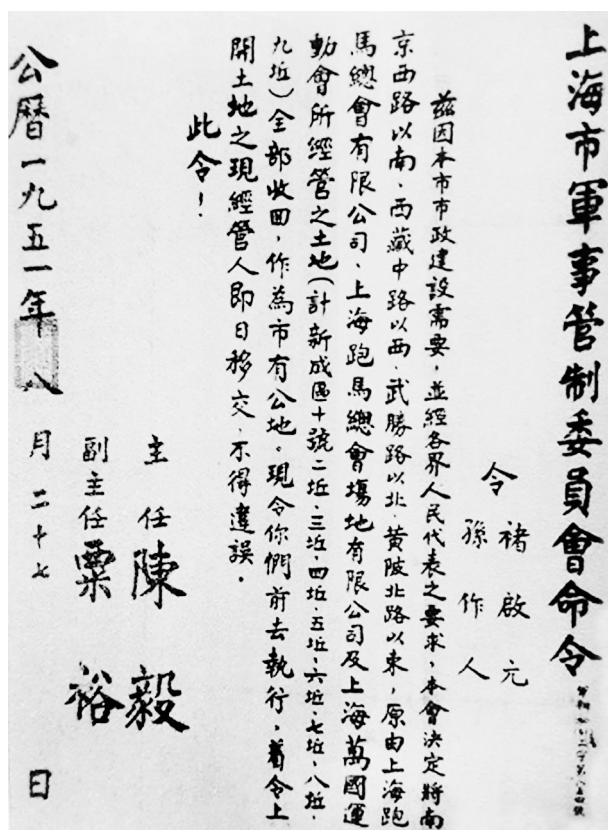 上海市軍事管制委員會命令
令 褚啟元
孫作人
茲因本市市政建設需要，並經各界人民代表之要求，本會決定將南
京西路以南、西藏中路以西、武勝路以北、黄陂北路以東，原由上海跑
馬總會有限公司、上海跑馬總會塲地有限公司及上海萬國運
動會所經管之土地（計新成區十號二坵、三坵、四坵、五坵、六坵、七坵、八坵、
九坵）全部收回，作為市有公地。現令你們前去執行，着令上
開土地之現經管人即日移交，不得違誤。
此令！
主任 陳毅
副主任 粟裕
公曆一九五一年八月二十七日